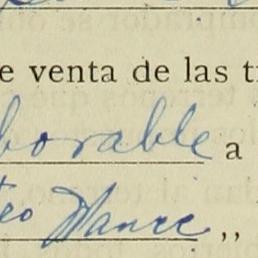 e venta de las t
borable a
teo Blance ,,